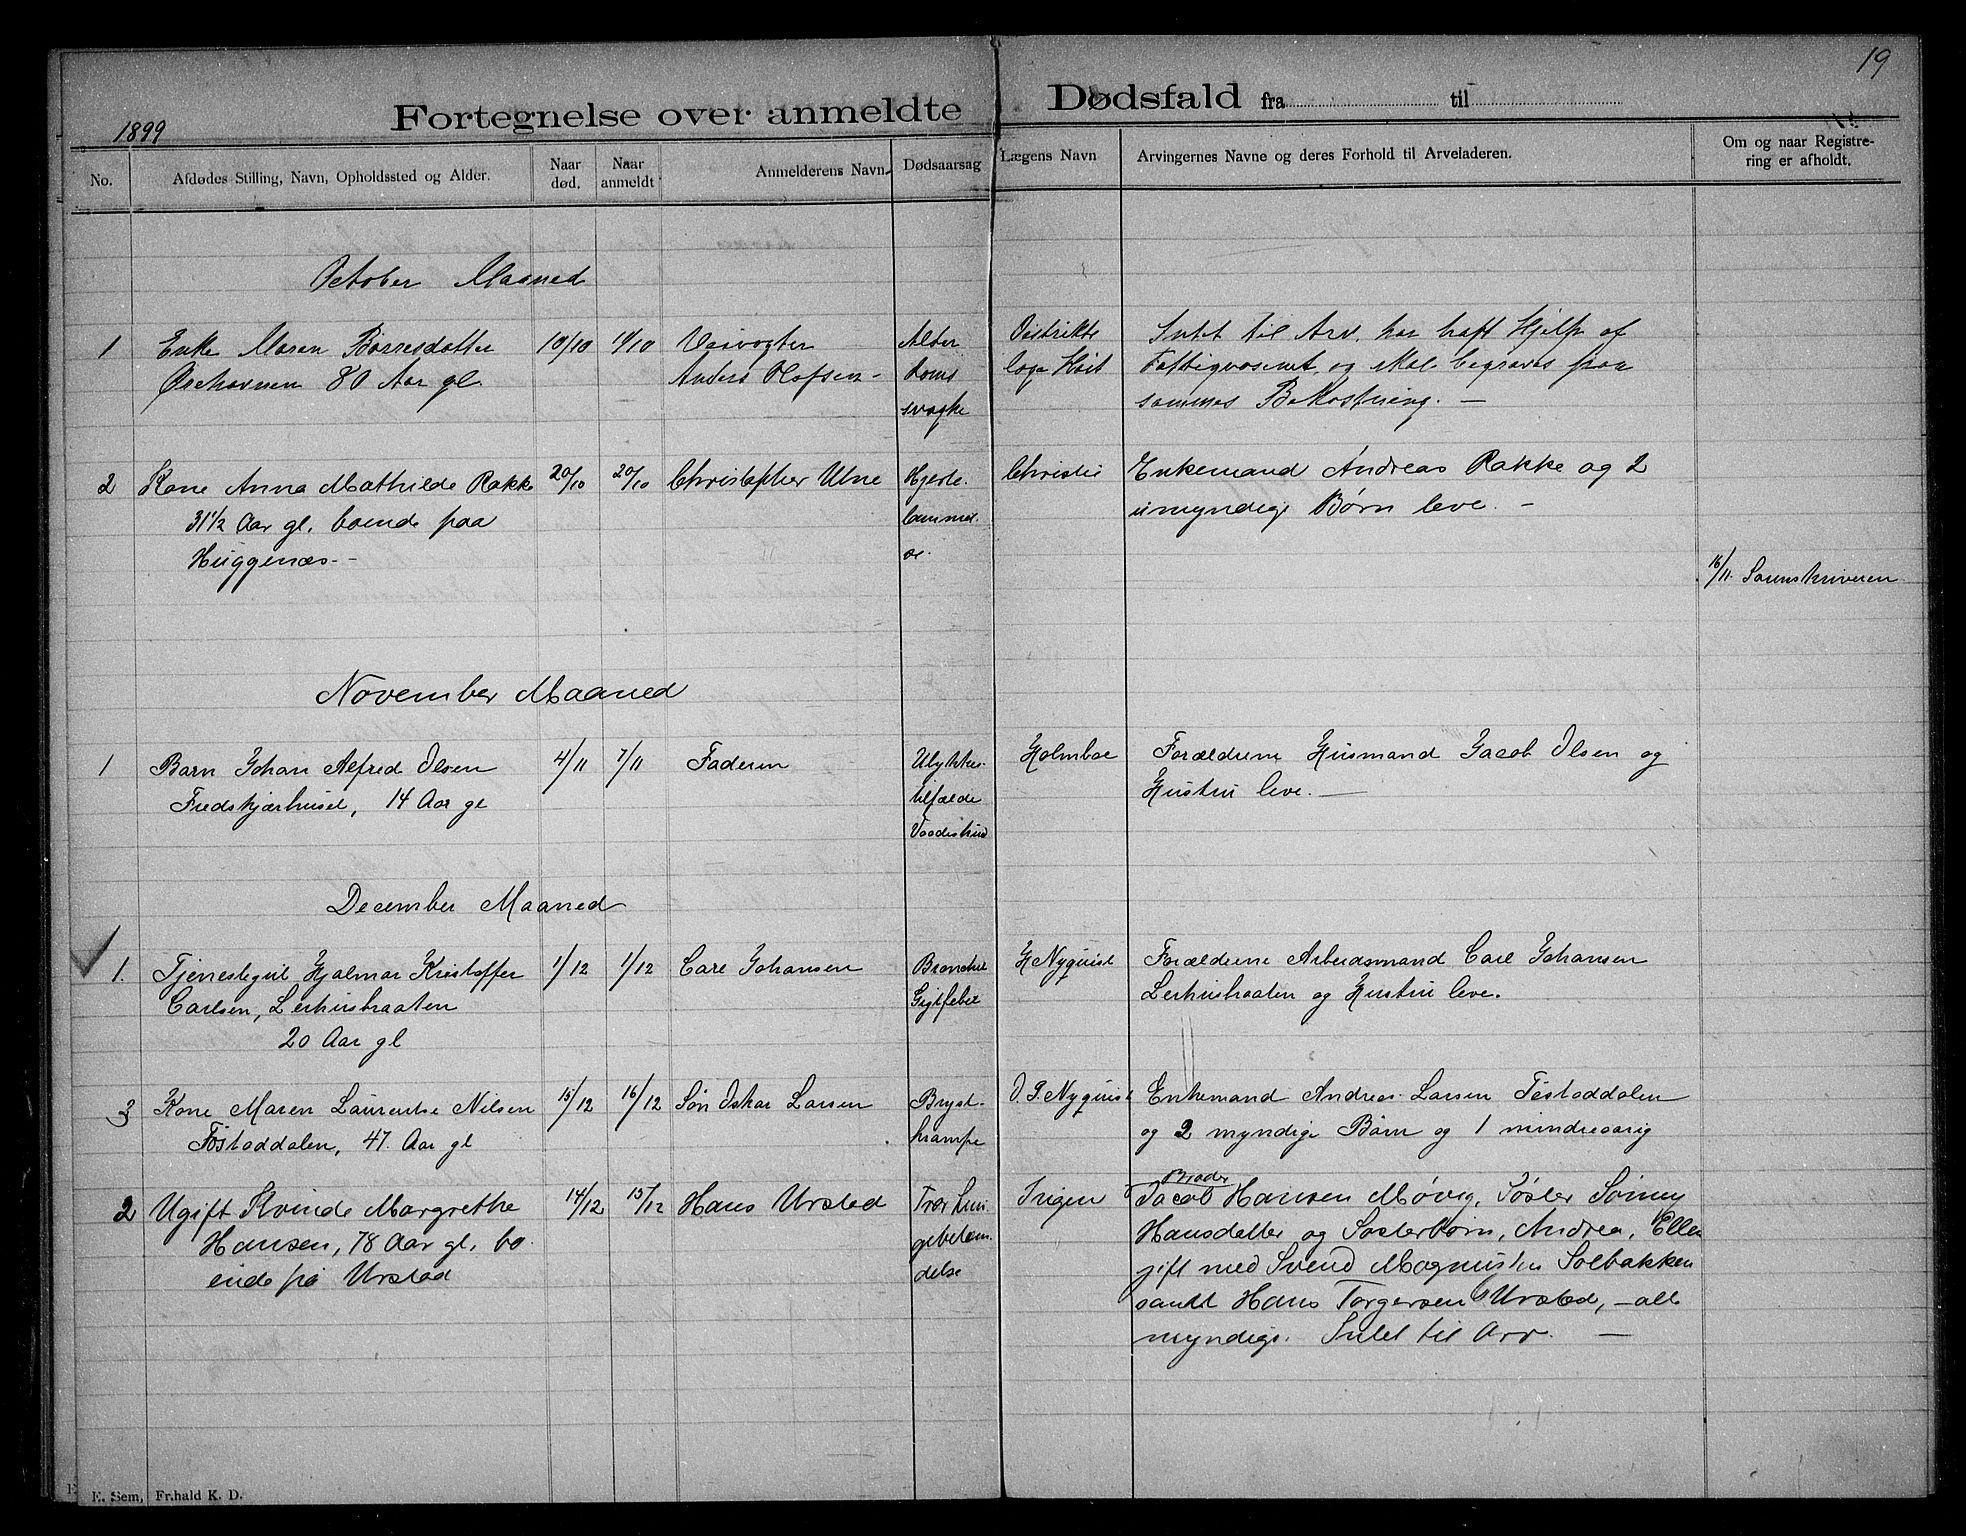 19
Fortegnelse over anmeldte Dødsfald fra til
1899
No. Afdødes Stilling, Navn, Opholdssted og Alder. Naar død. Naar anmeldt Anmelderens Navn. Dødsaarsag Lægens Navn Arvingernes Navne og deres Forhold til Arveladeren. Om og naar Registrering er afholdt.
October Maaned
1 Enke Maren Borresdatter 10/10 11/10 Veivogter Alder Distrikts Intet til Arv, har haft Hjelp af
80 Aar gl. Anders Olofsen - doms læge Høst Fattigvæsenet, og skal begraves paa
svaghe sammes Bekostning. —
2 Kone Anna Mathilde Rakke 20/10 20/10 Christopher Utne Hjerte- Christie Enkemand Andreas Rakke og 2
31½ Aar gl. boende paa lammel- umyndige Børn leve. -
Huggenæs. - se.
16/11. Sorenskriveren
November Maaned
1 Barn Johan Alfred Olsen 4/11 7/11 Faderen Ulykkes- Holmboe Forældrene Husmand Jacob Olsen og
Fredskjærhuset, 14 Aar gl tilfælde Hustru leve. —
Vaadeskud
December Maaned
1. Tjenestegut Hjalmar Kristoffer 1/12 1/12 Carl Johansen Bronchit H Nyquist Forældrene Arbeidsmand Carl Johansen
Carlsen, Lerhusbraaten Gigtfeber Lerhusbraaten og Hustru leve.
20 Aar gl
3 Kone Maren Laurentse Nilsen 15/12 16/12 Søn Oskar Larsen Bryst- O. P. Nyquist Enkemand Andreas Larsen Tøstaddalen
Tøstaddalen, 47 Aar gl krampe og 2 myndige Børn og 1 mindreaarig
2 Ugift Kvinde Margrethe 14/12 15/12 Hans Urstad Tvær Lun- Ingen Broder Jacob Hansen Møvig, Søster
Hansen, 78 Aar gl. bo- gebetæn- Hansdatter og Søsterbørn, Andrea, Ellen
ende på Urstad delse gift med Svend Magnusen Solbakken
samt Hans Torgersen Urstad, - alle
myndige. Intet til Arv. —
E. Sem, Fr.hald K. D.